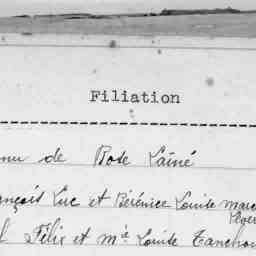 Filiation
nu de Rose Lainé
ançois Luc et Bérénice Louise
Félix et mde Louise Tanchou